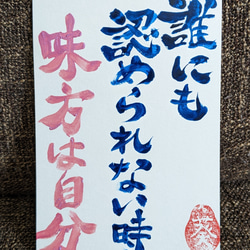 誰にも
認められない時
味方は自分